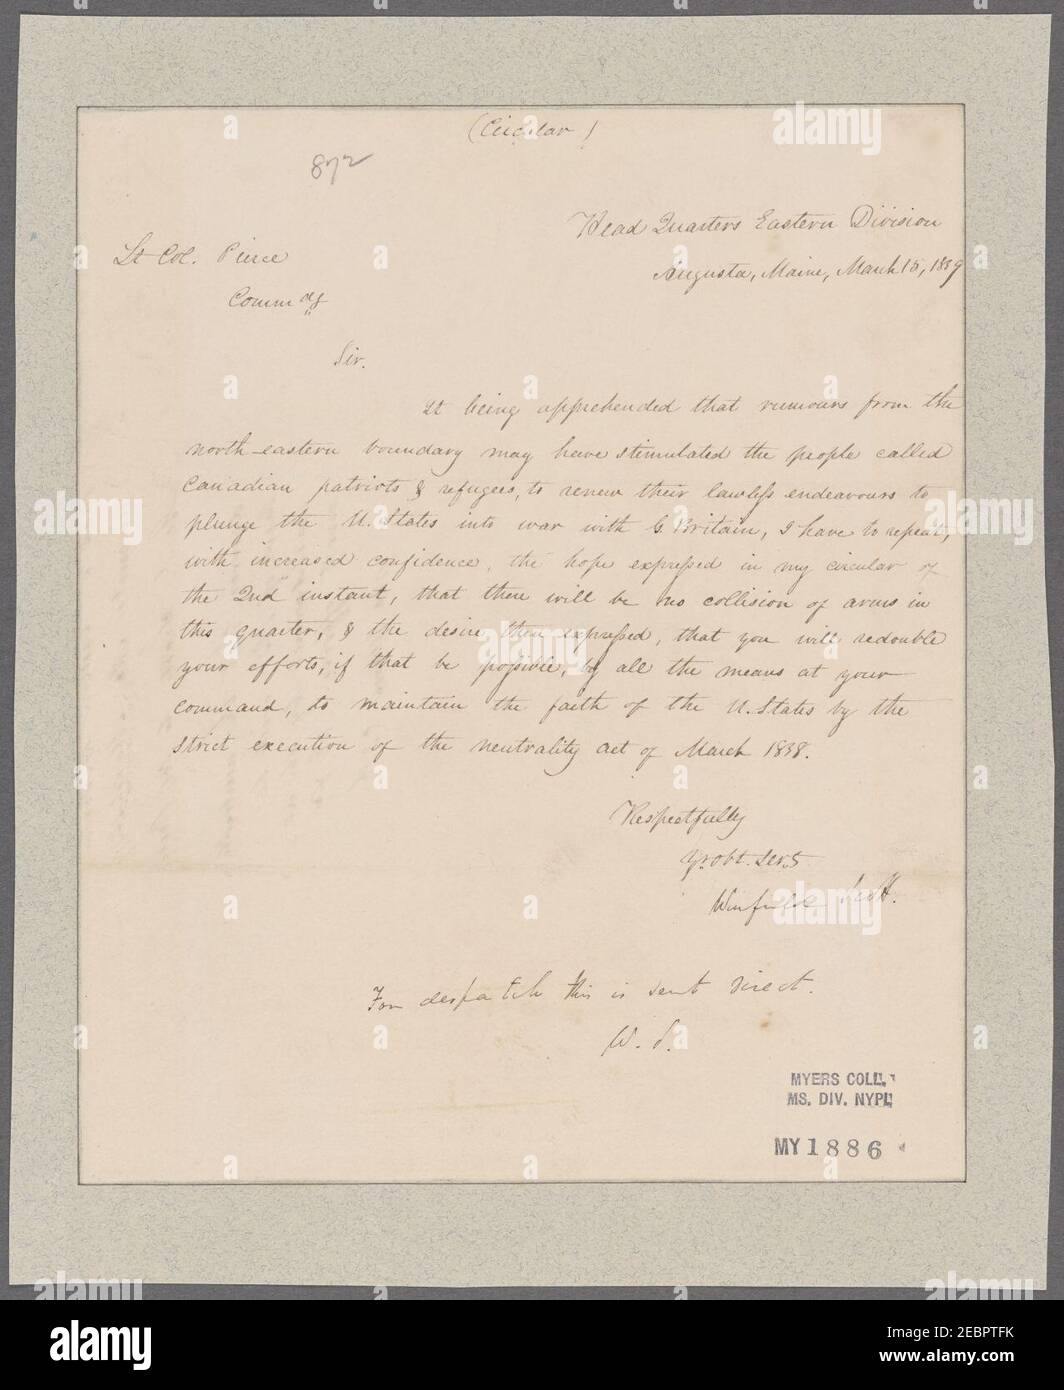 (Circular)
872
Head Quarters Eastern Division
Augusta, Maine, March 15, 1839
Lt Col. Pierce
Commdg
Sir.
It being apprehended that rumours from the
north-eastern boundary may have stimulated the people called
Canadian patriots & refugees, to renew their lawless endeavours to
plunge the U. States into war with G. Britain, I have to repeat,
with increased confidence, the hope expressed in my circular of
the 2nd instant, that there will be no collision of arms in
this quarter, & the desire then expressed, that you will redouble
your efforts, if that be possible, by all the means at your
command, to maintain the faith of the U. States by the
strict execution of the neutrality act of March 1838.
Respectfully
Yr obt. Servt
Winfield Scott.
For despatch this is sent direct.
W. S.
MYERS COLL.
MS. DIV. NYPL
MY 1886
alamy
Image ID: 2EBPTFK
www.alamy.com